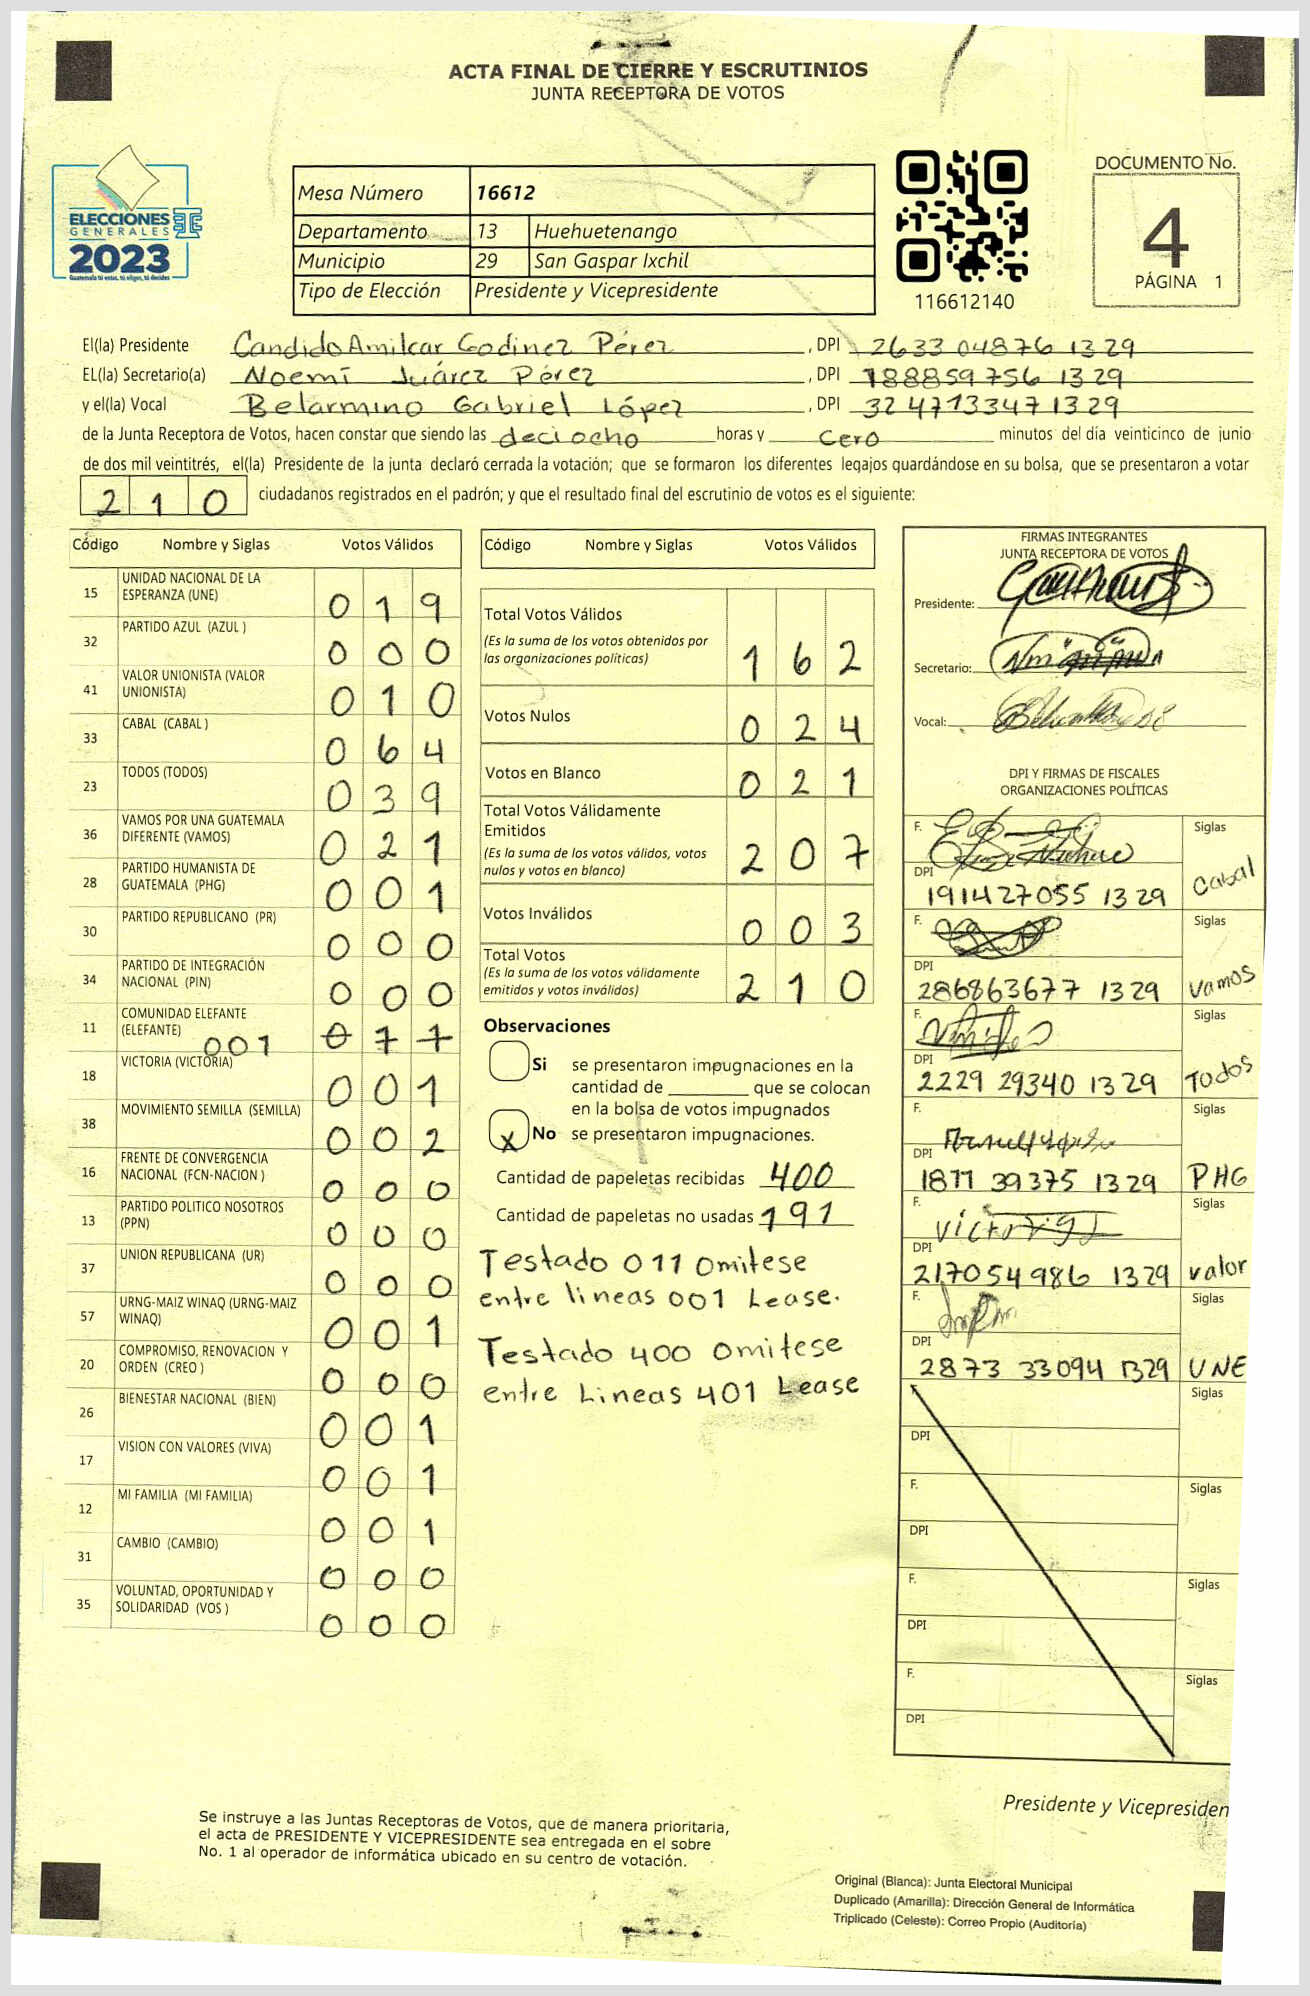 ACTA FINAL DE CIERRE Y ESCRUTINIOS
JUNTA RECEPTORA DE VOTOS
ELECCIONES
GENERALES
2023
Guatemala tú votas, tú eliges, tú decides
Mesa Número 16612
Departamento 13 Huehuetenango
Municipio 29 San Gaspar Ixchil
Tipo de Elección Presidente y Vicepresidente
116612140
DOCUMENTO No.
4
PÁGINA 1
El(la) Presidente Candido Amilcar Godinez Pérez, DPI 2633 04876 1329
EL(la) Secretario(a) Noemí Juárez Pérez, DPI 188859756 1329
y el(la) Vocal Belarmino Gabriel López, DPI 324713347 1329
de la Junta Receptora de Votos, hacen constar que siendo las deciocho horas y cero minutos del día veinticinco de junio
de dos mil veintitrés, el(la) Presidente de la junta declaró cerrada la votación; que se formaron los diferentes legajos guardándose en su bolsa, que se presentaron a votar
210 ciudadanos registrados en el padrón; y que el resultado final del escrutinio de votos es el siguiente:
Código Nombre y Siglas Votos Válidos
15 UNIDAD NACIONAL DE LA ESPERANZA (UNE) 019
32 PARTIDO AZUL (AZUL ) 000
41 VALOR UNIONISTA (VALOR UNIONISTA) 010
33 CABAL (CABAL ) 064
23 TODOS (TODOS) 039
36 VAMOS POR UNA GUATEMALA DIFERENTE (VAMOS) 021
28 PARTIDO HUMANISTA DE GUATEMALA (PHG) 001
30 PARTIDO REPUBLICANO (PR) 000
34 PARTIDO DE INTEGRACIÓN NACIONAL (PIN) 000
11 COMUNIDAD ELEFANTE (ELEFANTE) 001 011
18 VICTORIA (VICTORIA) 001
38 MOVIMIENTO SEMILLA (SEMILLA) 002
16 FRENTE DE CONVERGENCIA NACIONAL (FCN-NACION ) 000
13 PARTIDO POLITICO NOSOTROS (PPN) 000
37 UNION REPUBLICANA (UR) 000
57 URNG-MAIZ WINAQ (URNG-MAIZ WINAQ) 001
20 COMPROMISO, RENOVACION Y ORDEN (CREO ) 000
26 BIENESTAR NACIONAL (BIEN) 001
17 VISION CON VALORES (VIVA) 001
12 MI FAMILIA (MI FAMILIA) 001
31 CAMBIO (CAMBIO) 000
35 VOLUNTAD, OPORTUNIDAD Y SOLIDARIDAD (VOS ) 000
Código Nombre y Siglas Votos Válidos
Total Votos Válidos
(Es la suma de los votos obtenidos por las organizaciones políticas) 162
Votos Nulos 024
Votos en Blanco 021
Total Votos Válidamente Emitidos
(Es la suma de los votos válidos, votos nulos y votos en blanco) 207
Votos Inválidos 003
Total Votos
(Es la suma de los votos válidamente emitidos y votos inválidos) 210
Observaciones
Si se presentaron impugnaciones en la
cantidad de ________ que se colocan
en la bolsa de votos impugnados
x No se presentaron impugnaciones.
Cantidad de papeletas recibidas 400
Cantidad de papeletas no usadas 191
Testado 011 Omitese
entre lineas 001 Lease.
Testado 400 Omitese
entre Lineas 401 Lease
FIRMAS INTEGRANTES
JUNTA RECEPTORA DE VOTOS
Presidente:
Secretario:
Vocal:
DPI Y FIRMAS DE FISCALES
ORGANIZACIONES POLÍTICAS
F. Siglas
DPI 191427055 1329 Cabal
F. Siglas
DPI 286863677 1329 Vamos
F. Siglas
DPI 2229 29340 1329 Todos
F. Siglas
DPI 1877 39375 1329 PHG
F. Siglas
DPI 217054986 1329 valor
F. Siglas
DPI 2873 33094 1329 UNE
Siglas
DPI
F. Siglas
DPI
F. Siglas
DPI
F. Siglas
DPI
Presidente y Vicepresiden
Se instruye a las Juntas Receptoras de Votos, que de manera prioritaria,
el acta de PRESIDENTE Y VICEPRESIDENTE sea entregada en el sobre
No. 1 al operador de informática ubicado en su centro de votación.
Original (Blanca): Junta Electoral Municipal
Duplicado (Amarilla): Dirección General de Informática
Triplicado (Celeste): Correo Propio (Auditoría)